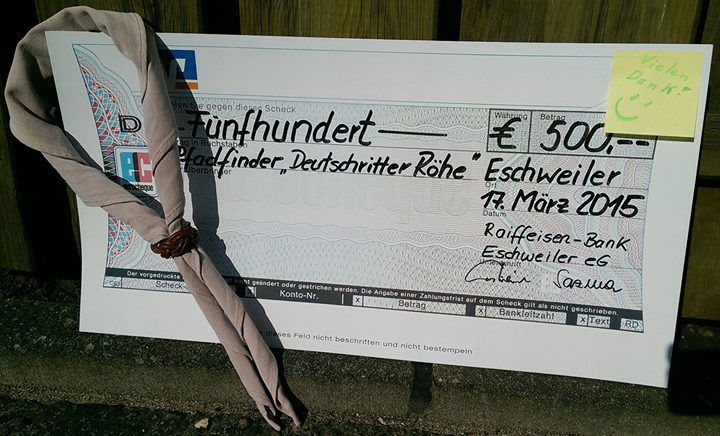 Vielen
Dank!
len Sie gegen diesen Scheck
D
-Fünfhundert-
Währung
€
Betrag
500,--
in Buchstaben
Pfadfinder „Deutschritter Röhe"
Eschweiler
ec
eurocheque
Überbringer
Ort
17. März 2015
Datum
Raiffeisen-Bank
Eschweiler eG
Unterschrift
Der vorgedruckte
nicht geändert oder gestrichen werden. Die Angabe einer Zahlungsfrist auf dem Scheck gilt als nicht geschrieben.
Scheck-
X Konto-Nr.
X Betrag
X Bankleitzahl
X Text
RD
dieses Feld nicht beschriften und nicht bestempeln